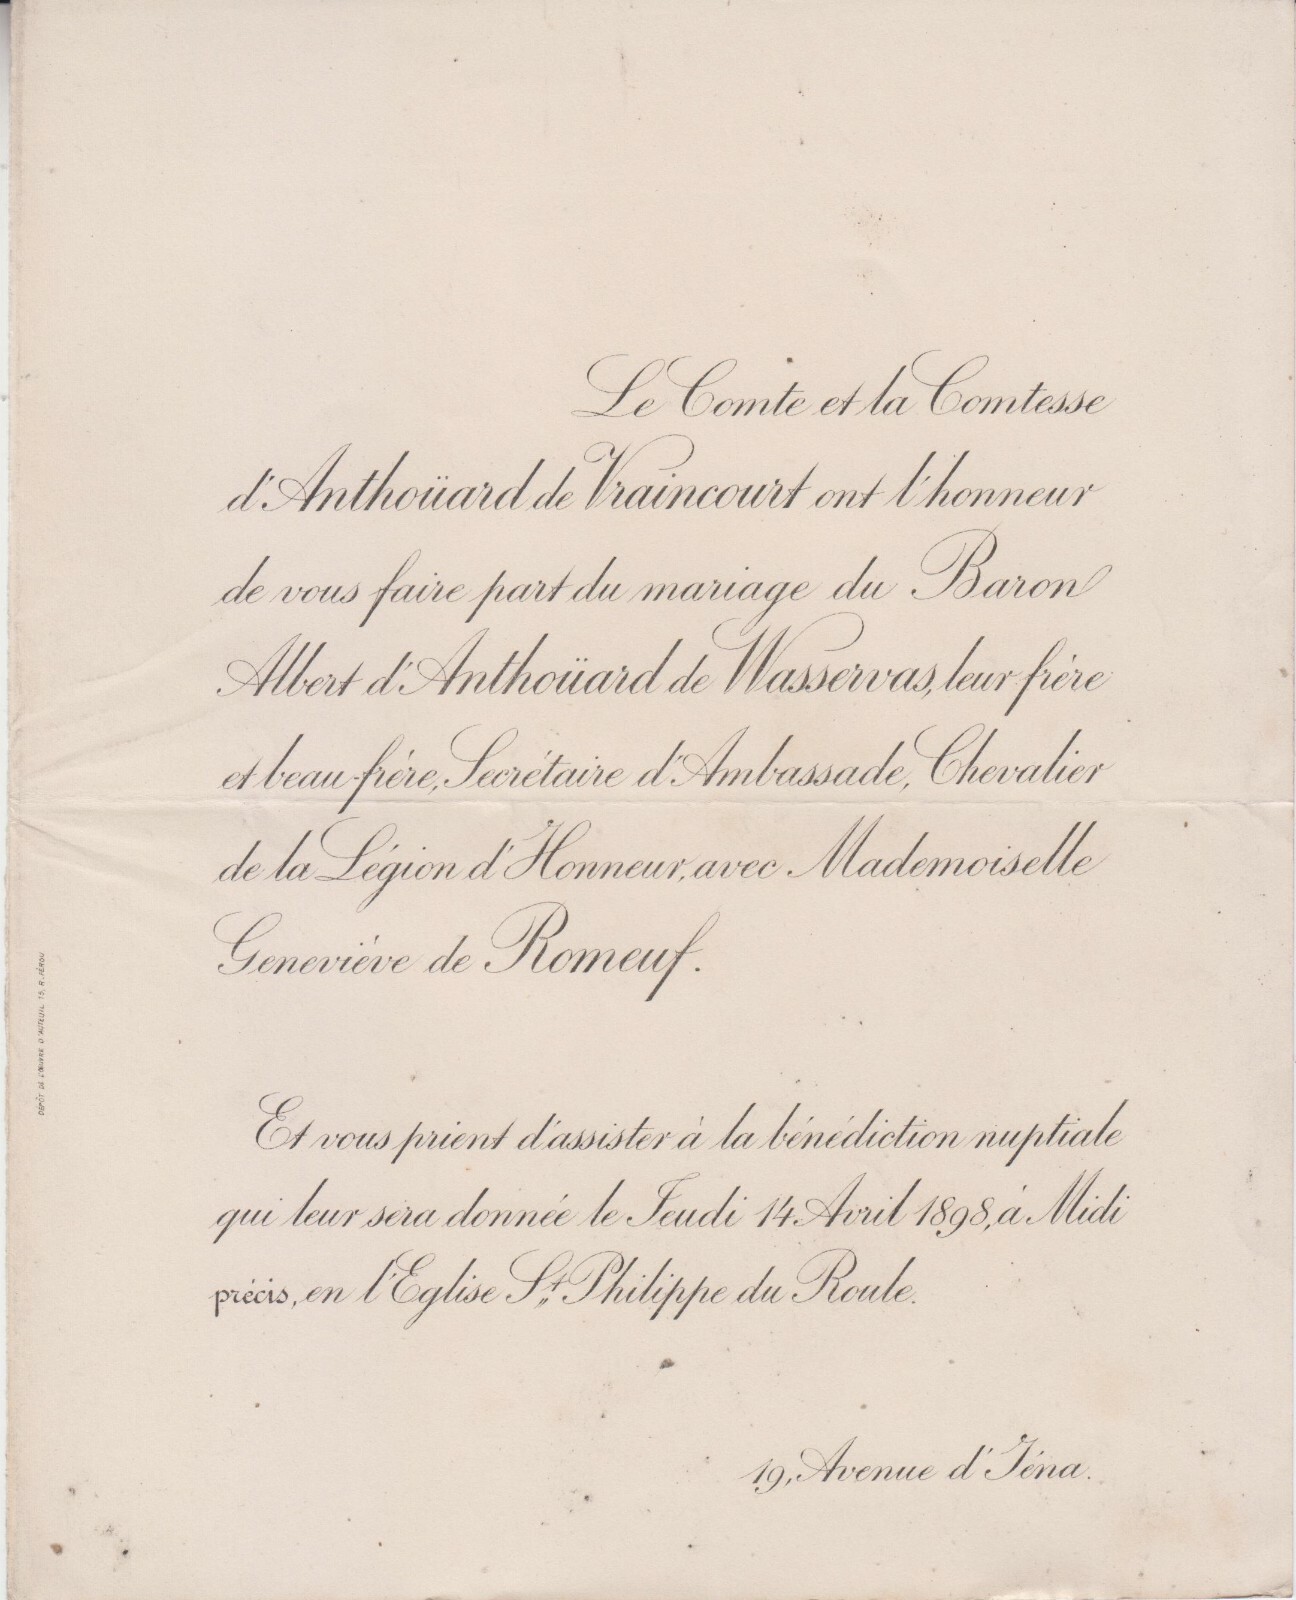 Le Comte et la Comtesse
d'Anthoüard de Vraincourt ont l'honneur
de vous faire part du mariage du Baron
Albert d'Anthoüard de Wasservas, leur frère
et beau-frère, Secrétaire d'Ambassade, Chevalier
de la Légion d'Honneur, avec Mademoiselle
Geneviève de Romeuf.
Et vous prient d'assister à la bénédiction nuptiale
qui leur sera donnée le Jeudi 14 Avril 1898, à Midi
précis, en l'Eglise St Philippe du Roule.
19, Avenue d'Jéna.
DÉPÔT DE L'ŒUVRE D'AUTEUIL 15, R. FÉROU